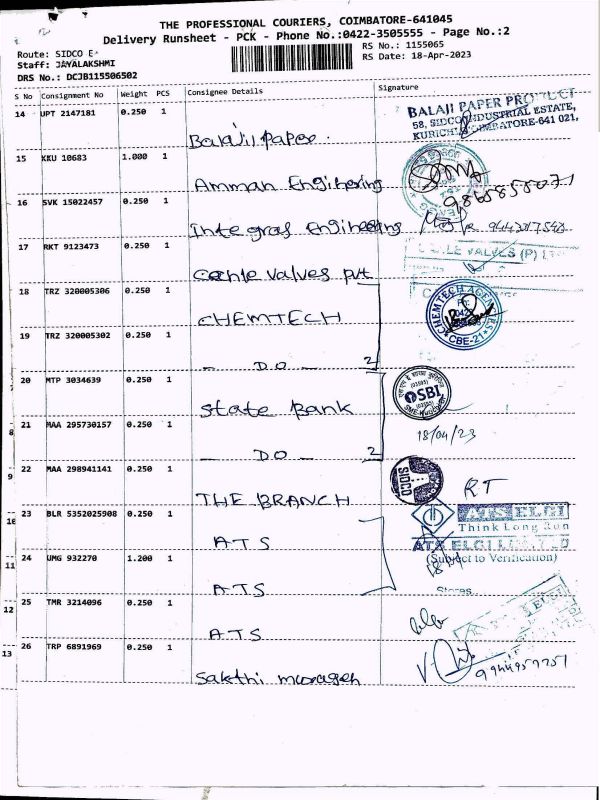 THE PROFESSIONAL COURIERS, COIMBATORE-641045
Delivery Runsheet - PCK - Phone No.:0422-3505555 - Page No.:2
Route: SIDCO E
RS No.: 1155065
Staff: JAYALAKSHMI
RS Date: 18-Apr-2023
DRS No.: DCJB115506502
S No Consignment No Weight PCS Consignee Details Signature
14 UPT 2147181 0.250 1
Balaji Paper.
BALAJI PAPER PRODUCT
58, SIDCO INDUSTRIAL ESTATE,
KURICHI, COIMBATORE-641 021,
15 KKU 10683 1.000 1
Amman Enginering
16 SVK 15022457 0.250 1
Integraf Engineering
17 RKT 9123473 0.250 1
cable valves pvt
LE VALVES (P) LTD
18 TRZ 320005306 0.250 1
CHEMTECH
CHEMTECH AGENCIES
CBE-21
19 TRZ 320005302 0.250 1
- DO - 2
20 MTP 3034639 0.250 1
State Bank
SBI
18/04/23
21 MAA 295730157 0.250 1
- DO - 2
22 MAA 298941141 0.250 1
THE BRANCH
SIDCO
RT
23 BLR 5352025908 0.250 1
ATS
ATS ELGI
Think Long Run
ATS ELGI LIMITED
(Subject to Verification)
Stores
24 UMG 932270 1.200 1
ATS
25 TMR 3214096 0.250 1
ATS
ELGI
26 TRP 6891969 0.250 1
Sakthi murugesh
8
9
10
11
12
13